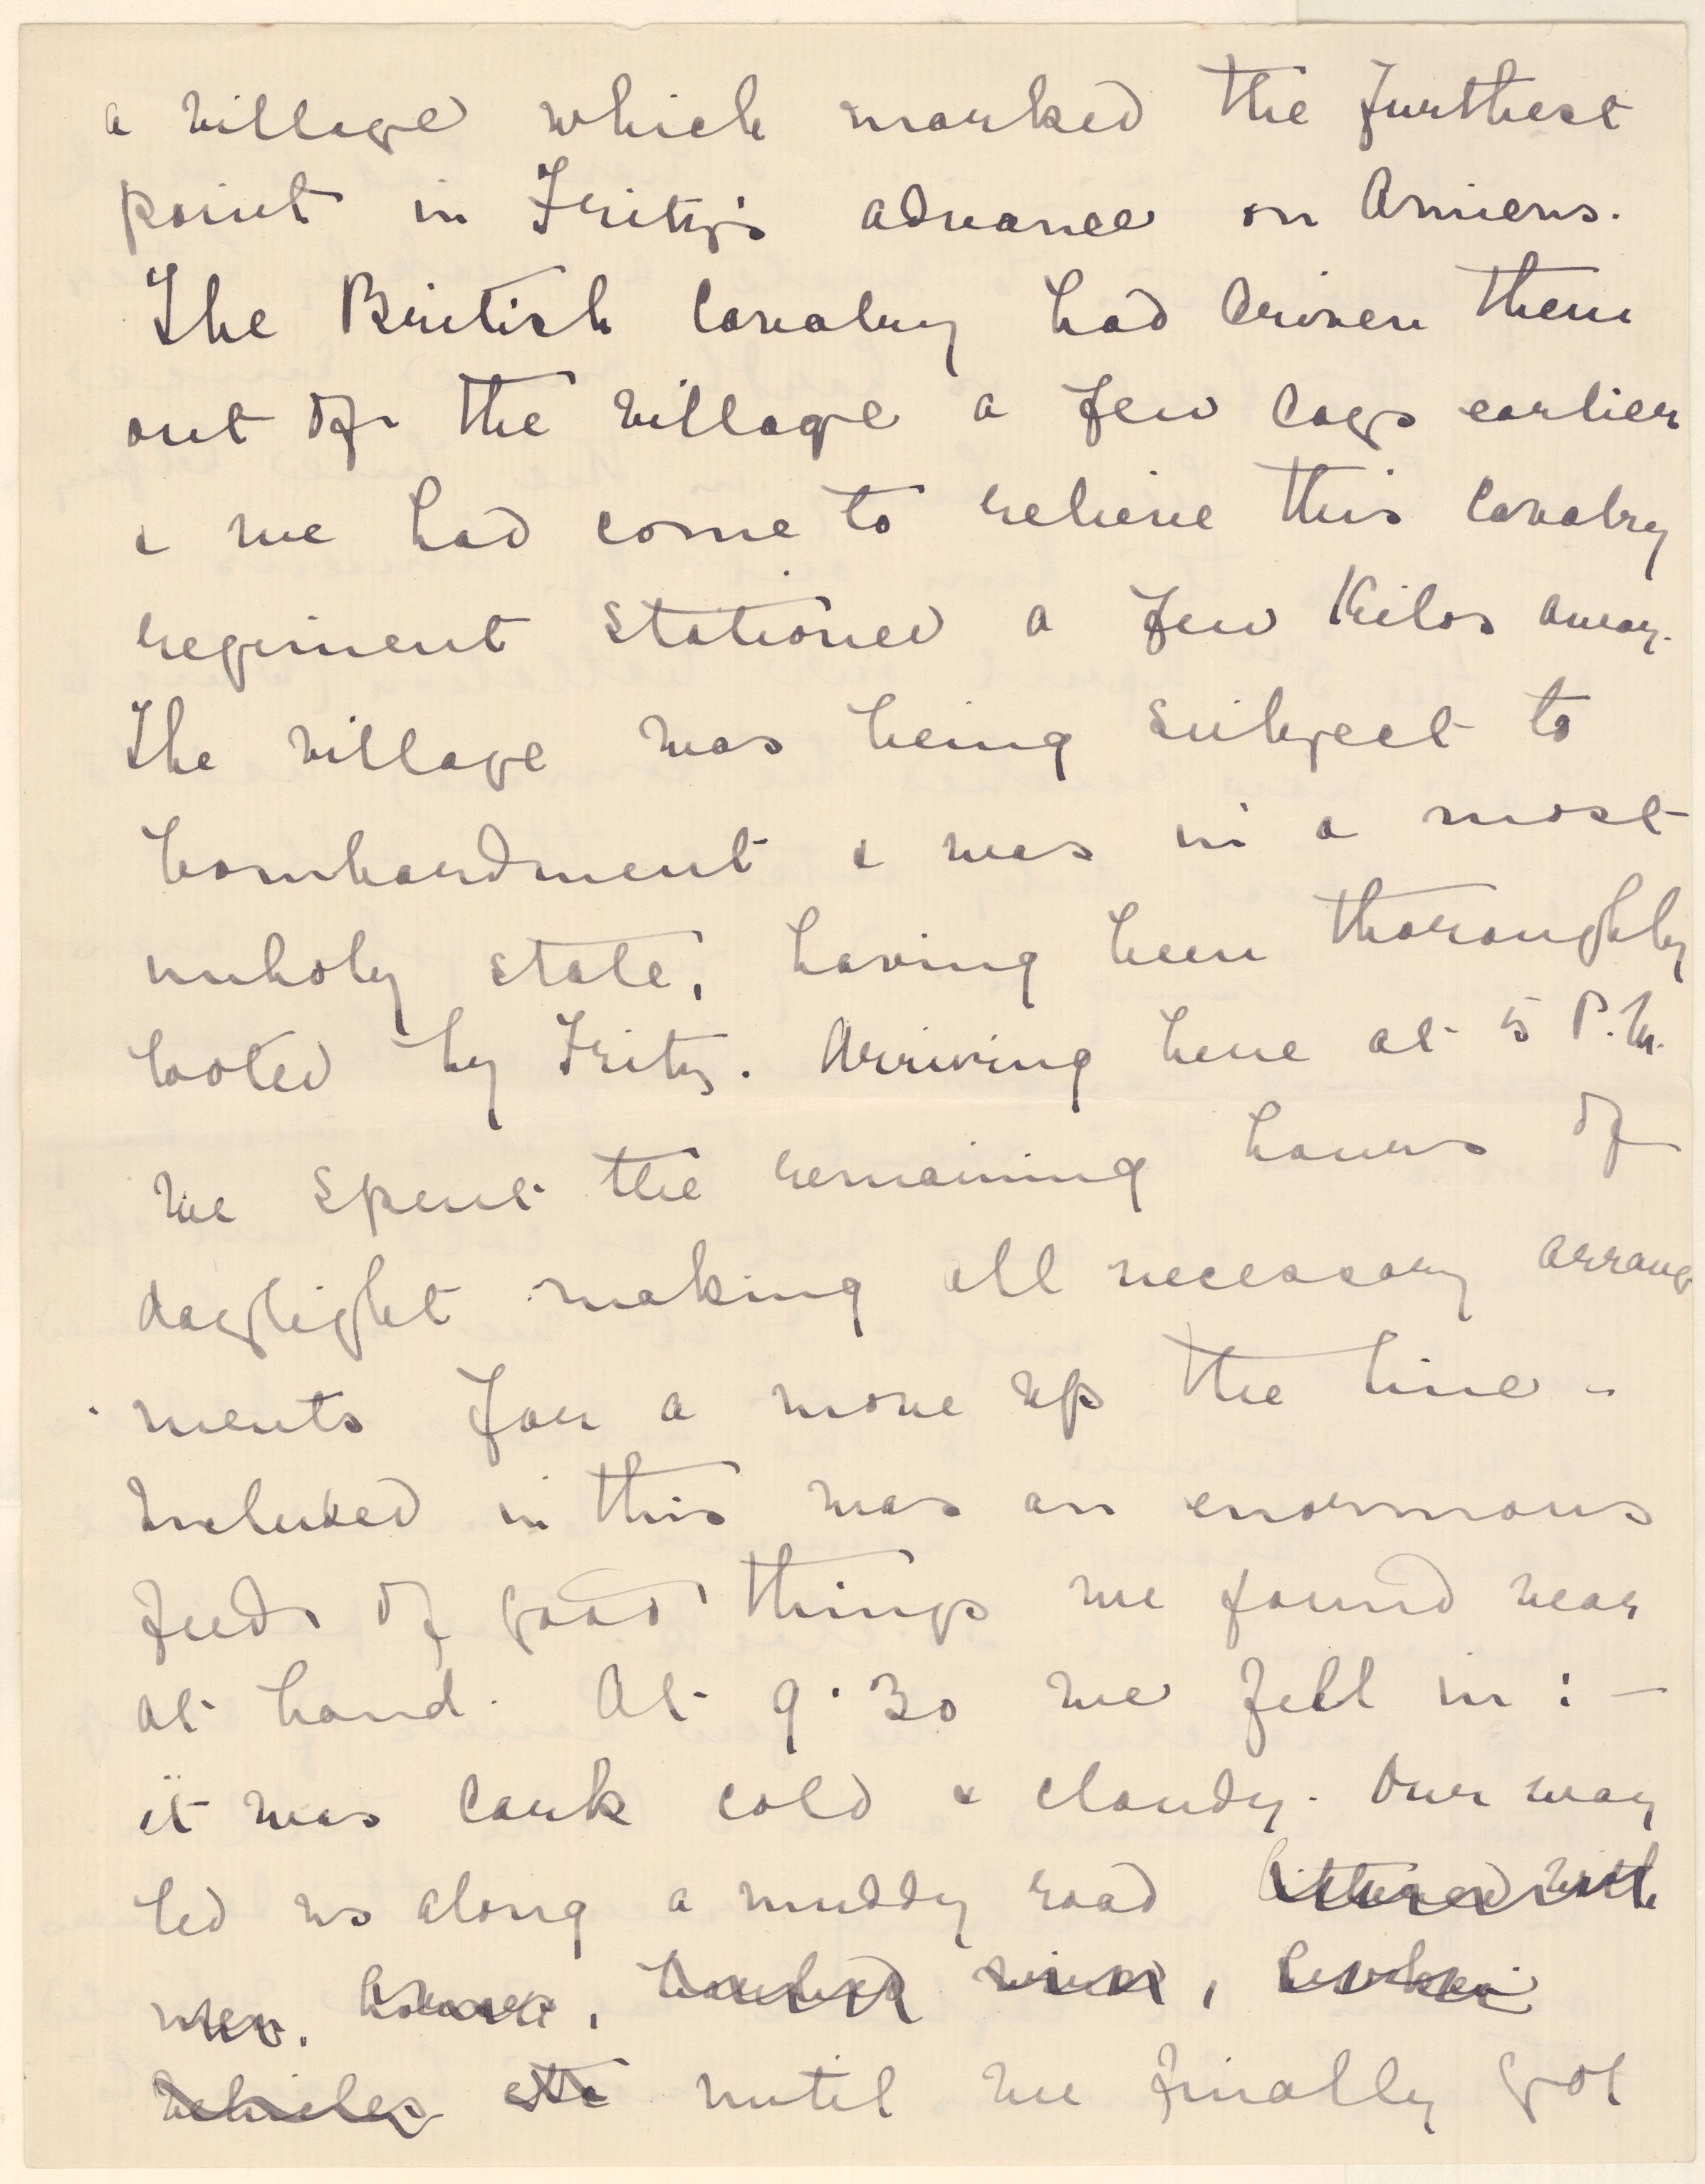 a village which marked the furthest
point in Fritz's advance on Amiens.
The British Cavalry had driven them
out of the village a few days earlier
& we had come to relieve this Cavalry
regiment stationed a few Kilos away.
The village was being subject to
bombardment & was in a most
unholy state, having been thoroughly
looted by Fritz. Arriving here at 5 P.M.
we spent the remaining hours of
daylight making all necessary arrange
ments for a move up the line -
Included in this was an enormous
feed of good things we found near
at hand. At 9.30 we fell in : -
it was dark cold & cloudy. Our way
led us along a muddy road littered with
men, horses, barbed wire, broken
vehicles etc until we finally got